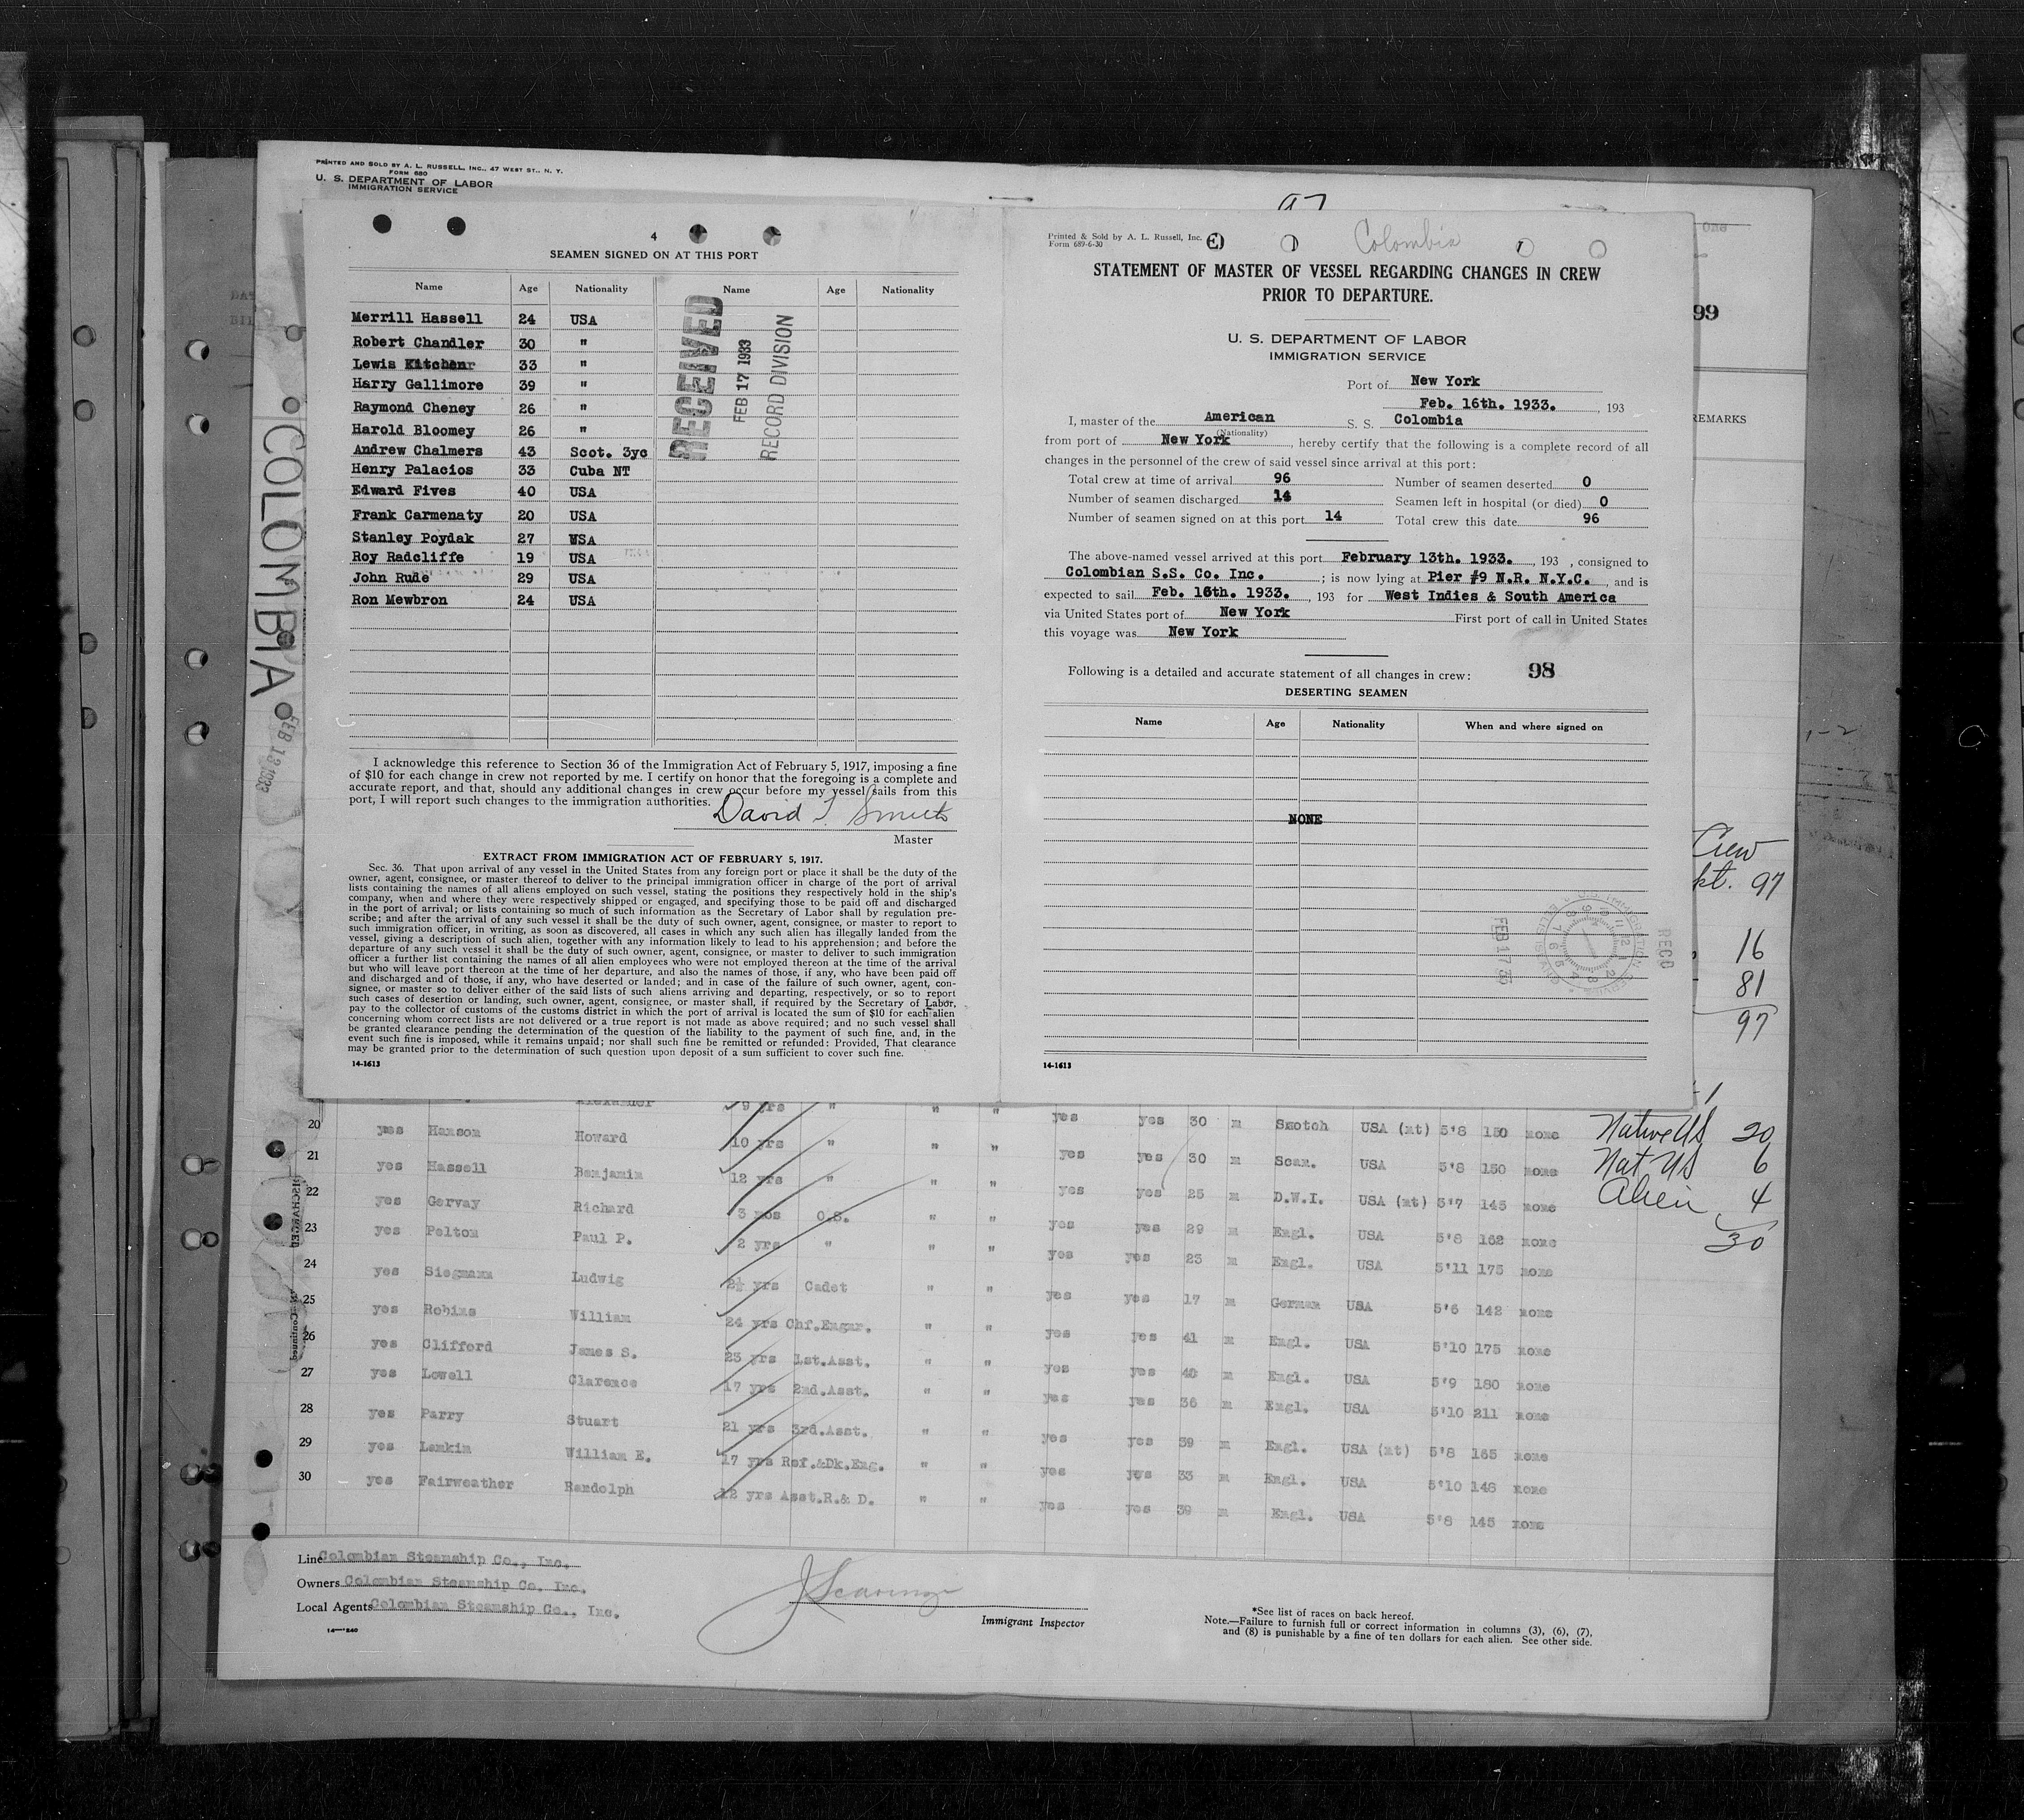 PRINTED AND SOLD BY A. L. RUSSELL, INC., 47 WEST ST., N. Y.
FORM 680
U. S. DEPARTMENT OF LABOR
IMMIGRATION SERVICE
4
SEAMEN SIGNED ON AT THIS PORT
Name Age Nationality Name Age Nationality
Merrill Hassell 24 USA
Robert Chandler 30 "
Lewis Kitchener 33 "
Harry Gallimore 39 "
Raymond Cheney 26 "
Harold Bloomey 26 "
Andrew Chalmers 43 Scot. 3yc
Henry Palacios 33 Cuba NT
Edward Fives 40 USA
Frank Carmenaty 20 USA
Stanley Poydak 27 USA
Roy Radcliffe 19 USA
John Rude 29 USA
Ron Mewbron 24 USA
RECEIVED
FEB 17 1933
RECORD DIVISION
I acknowledge this reference to Section 36 of the Immigration Act of February 5, 1917, imposing a fine
of $10 for each change in crew not reported by me. I certify on honor that the foregoing is a complete and
accurate report, and that, should any additional changes in crew occur before my vessel sails from this
port, I will report such changes to the immigration authorities.
David T. Smith
Master
EXTRACT FROM IMMIGRATION ACT OF FEBRUARY 5, 1917.
Sec. 36. That upon arrival of any vessel in the United States from any foreign port or place it shall be the duty of the
owner, agent, consignee, or master thereof to deliver to the principal immigration officer in charge of the port of arrival
lists containing the names of all aliens employed on such vessel, stating the positions they respectively hold in the ship's
company, when and where they were respectively shipped or engaged, and specifying those to be paid off and discharged
in the port of arrival; or lists containing so much of such information as the Secretary of Labor shall by regulation pre-
scribe; and after the arrival of any such vessel it shall be the duty of such owner, agent, consignee, or master to report to
such immigration officer, in writing, as soon as discovered, all cases in which any such alien has illegally landed from the
vessel, giving a description of such alien, together with any information likely to lead to his apprehension; and before the
departure of any such vessel it shall be the duty of such owner, agent, consignee, or master to deliver to such immigration
officer a further list containing the names of all alien employees who were not employed thereon at the time of the arrival
but who will leave port thereon at the time of her departure, and also the names of those, if any, who have been paid off
and discharged and of those, if any, who have deserted or landed; and in case of the failure of such owner, agent, con-
signee, or master so to deliver either of the said lists of such aliens arriving and departing, respectively, or so to report
such cases of desertion or landing, such owner, agent, consignee, or master shall, if required by the Secretary of Labor,
pay to the collector of customs of the customs district in which the port of arrival is located the sum of $10 for each alien
concerning whom correct lists are not delivered or a true report is not made as above required; and no such vessel shall
be granted clearance pending the determination of the question of the liability to the payment of such fine, and, in the
event such fine is imposed, while it remains unpaid; nor shall such fine be remitted or refunded: Provided, That clearance
may be granted prior to the determination of such question upon deposit of a sum sufficient to cover such fine.
14-1613
Printed & Sold by A. L. Russell, Inc.
Form 689-6-30
Colombia
STATEMENT OF MASTER OF VESSEL REGARDING CHANGES IN CREW
PRIOR TO DEPARTURE.
U. S. DEPARTMENT OF LABOR
IMMIGRATION SERVICE
Port of New York
Feb. 16th. 1933. , 193
I, master of the American S. S. Colombia
(Nationality)
from port of New York , hereby certify that the following is a complete record of all
changes in the personnel of the crew of said vessel since arrival at this port:
Total crew at time of arrival 96 Number of seamen deserted 0
Number of seamen discharged 14 Seamen left in hospital (or died) 0
Number of seamen signed on at this port 14 Total crew this date 96
The above-named vessel arrived at this port February 13th. 1933. , 193 , consigned to
Colombian S.S. Co. Inc. ; is now lying at Pier #9 N.R. N.Y.C. , and is
expected to sail Feb. 16th. 1933. , 193 for West Indies & South America
via United States port of New York First port of call in United States
this voyage was New York
Following is a detailed and accurate statement of all changes in crew: 98
DESERTING SEAMEN
Name Age Nationality When and where signed on
NONE
FEB 17 33
RECD
14-1613
97
One
99
REMARKS
Crew
kt. 97
16
81
97
COLOMBIA
FEB 13 1933
DISCHARGED
IN—Continued
Alexander 9 yrs " " " yes yes 30 m Scotch USA (nt) 5'8 150 none
20 yes Hanson Howard 10 yrs " " " yes yes 30 m Scan. USA 5'8 150 none
21 yes Hassell Benjamin 12 yrs " " " yes yes 25 m D.W.I. USA (nt) 5'7 145 none
22 yes Gervay Richard 3 mos O.S. " " yes yes 29 m Engl. USA 5'8 162 none
23 yes Pelton Paul P. 2 yrs " " " yes yes 23 m Engl. USA 5'11 175 none
24 yes Siegmann Ludwig 2½ yrs Cadet " " yes yes 17 m German USA 5'6 142 none
25 yes Robins William 24 yrs Chf.Engnr. " " yes yes 41 m Engl. USA 5'10 175 none
26 yes Clifford James S. 23 yrs 1st.Asst. " " yes yes 40 m Engl. USA 5'9 180 none
27 yes Lowell Clarence 17 yrs 2nd.Asst. " " yes yes 36 m Engl. USA 5'10 211 none
28 yes Parry Stuart 21 yrs 3rd.Asst. " " yes yes 39 m Engl. USA (nt) 5'8 165 none
29 yes Lamkin William E. 17 yrs Ref.&Dk.Eng. " " yes yes 33 m Engl. USA 5'10 148 none
30 yes Fairweather Randolph 12 yrs Asst.R.& D. " " yes yes 39 m Engl. USA 5'8 145 none
Native US 20
Nat US 6
Alien 4
30
Line Colombian Steamship Co., Inc.
Owners Colombian Steamship Co. Inc.
Local Agents Colombian Steamship Co., Inc.
14—240
Immigrant Inspector
*See list of races on back hereof.
Note.—Failure to furnish full or correct information in columns (3), (6), (7),
and (8) is punishable by a fine of ten dollars for each alien. See other side.